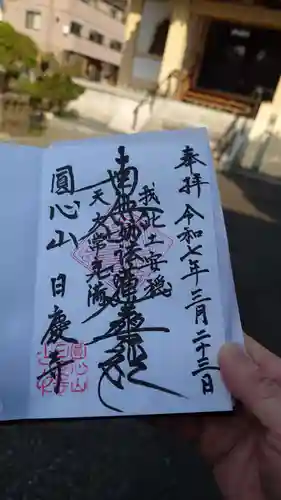 奉拝 令和七年三月二十三日
我此土安穏
南無妙法蓮華経
天人常充満
圓心山 日慶寺